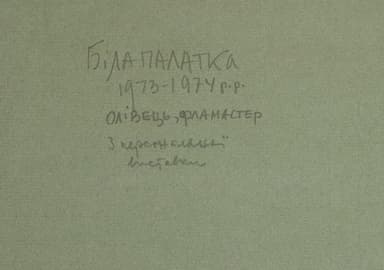 БІЛА ПАЛАТКА
1973-1974 р.р.
ОЛІВЕЦЬ, ФЛАМАСТЕР
З персональної
виставки